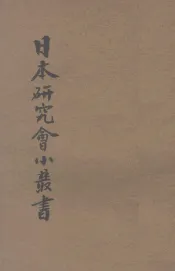 日本研究會小叢書